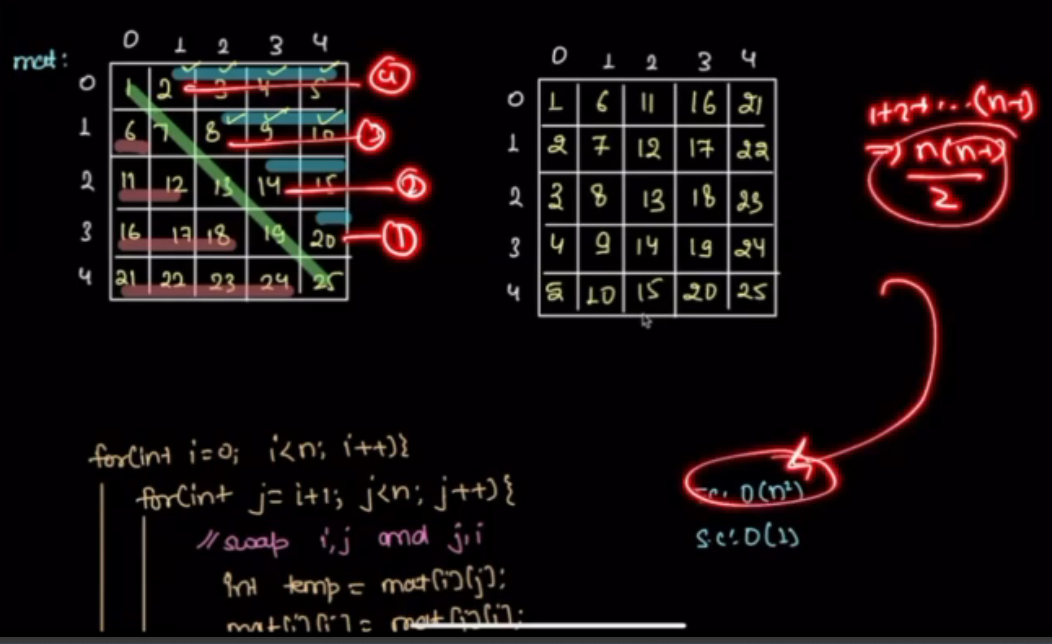 mat:
0 1 2 3 4
0 1 2 3 4 5 4
1 6 7 8 9 10 3
2 11 12 13 14 15 2
3 16 17 18 19 20 1
4 21 22 23 24 25
0 1 2 3 4
0 1 6 11 16 21
1 2 7 12 17 22
2 3 8 13 18 23
3 4 9 14 19 24
4 5 10 15 20 25
1+2+...(n-1)
=> n(n-1)
2
for(int i=0; i<n; i++){
for(int j=i+1; j<n; j++){
//swap i,j and j,i
int temp = mat[i][j];
mat[i][j] = mat[j][i];
T.C: O(n²)
S.C: O(1)